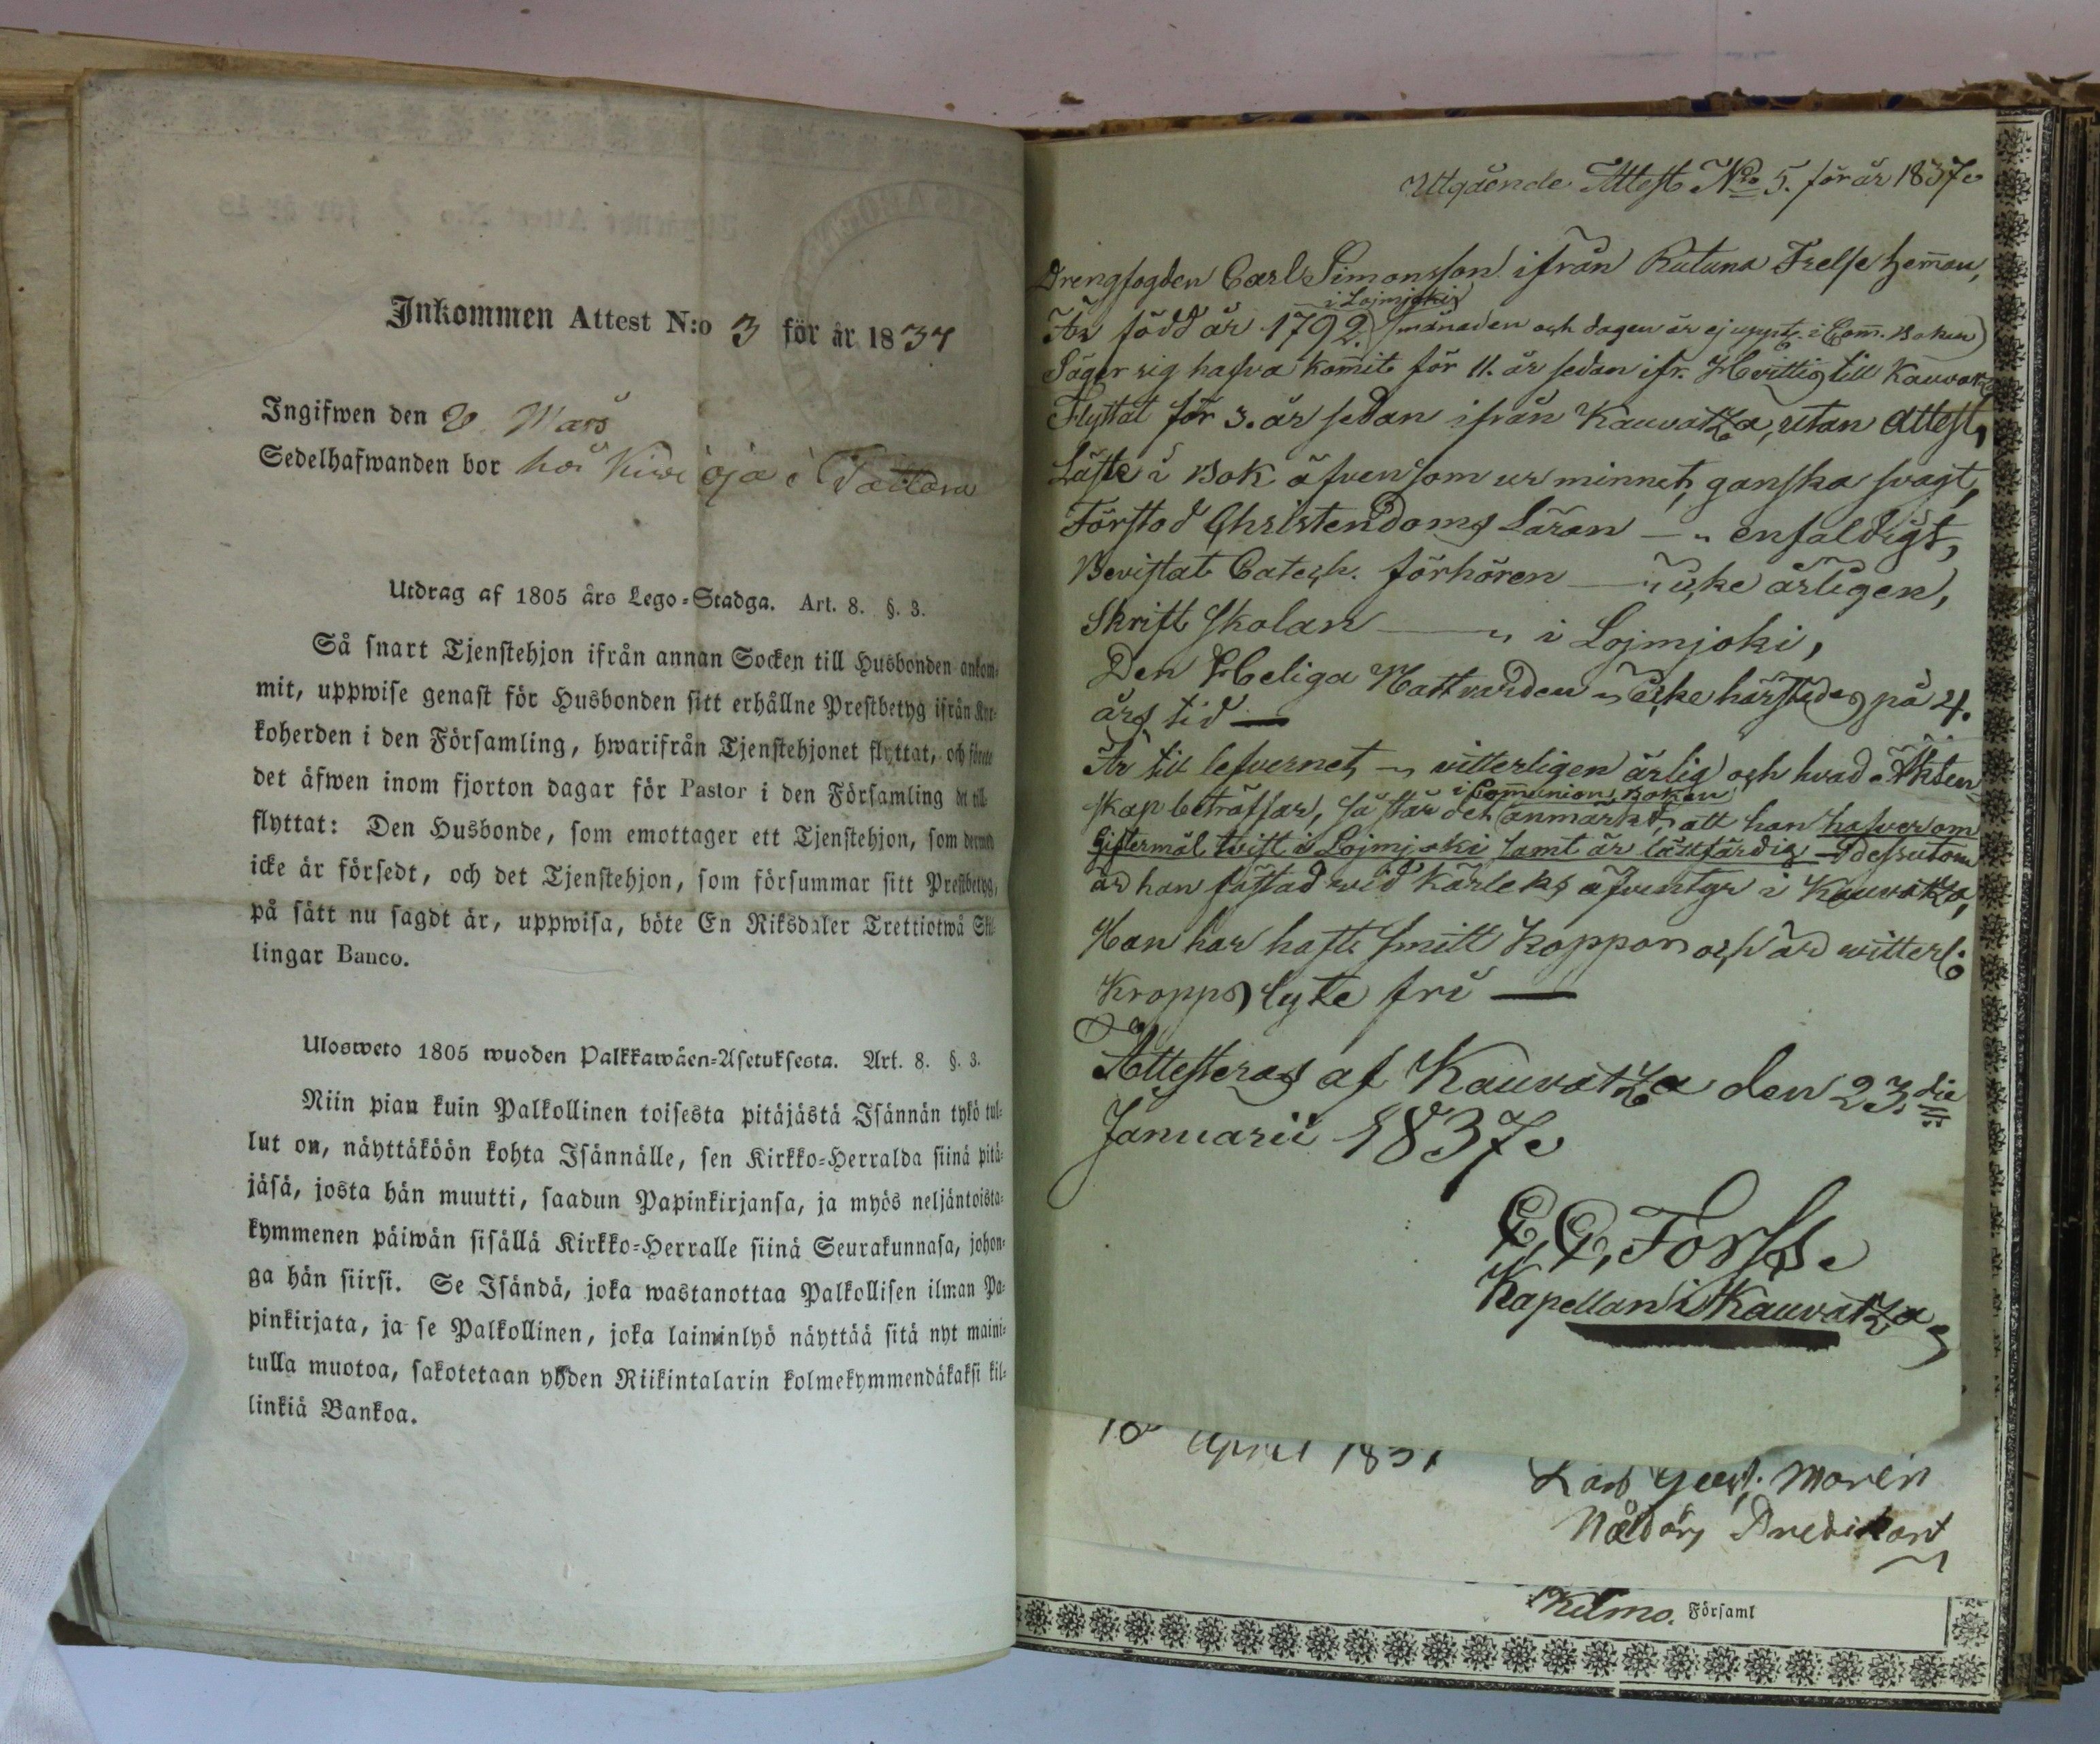 Inkommen Attest N:o 3 för år 1837
Ingifwen den 2 Mars
Sedelhafwanden bor hos i
Utdrag af 1805 års Lego-Stadga. Art. 8. §. 3.
Så snart Tjenstehjon ifrån annan Socken till Husbonden ankom-
mit, uppwise genast för Husbonden sitt erhållne Prestbetyg ifrån Kyr-
koherden i den Församling, hwarifrån Tjenstehjonet flyttat, och förete
det äfwen inom fjorton dagar för Pastor i den Församling det till-
flyttat: Den Husbonde, som emottager ett Tjenstehjon, som dermed
icke är försedt, och det Tjenstehjon, som försummar sitt Prestbetyg,
på sätt nu sagdt är, uppwisa, böte En Riksdaler Trettiotwå Skil-
lingar Banco.
Ulosweto 1805 wuoden Palkkawäen-Asetuksesta. Art. 8. §. 3.
Niin pian kuin Palkollinen toisesta pitäjästä Isännän tykö tul-
lut on, näyttäköön kohta Isännälle, sen Kirkko-Herralda siinä pitä-
jäsä, josta hän muutti, saadun Papinkirjansa, ja myös neljäntoista-
kymmenen päiwän sisällä Kirkko-Herralle siinä Seurakunnasa, johon-
ga hän siirsi. Se Isändä, joka wastanottaa Palkollisen ilman Pa-
pinkirjata, ja se Palkollinen, joka laiminlyö näyttää sitä nyt maini-
tulla muotoa, sakotetaan yhden Riikintalarin kolmekymmendäkaksi kil-
linkiä Bankoa.
Utgående Attest No 5. för år 1837
Drengfogden Carl Simonsson ifrån Rutuna Frelse hemman,
i Lojmjoki
Är född år 1792. (månaden och dagen är ej uppt. i Com. Boken)
Säger sig hafva kommit för 11. år sedan ifr. Hvittis till Kauvatza
Flyttat för 3. år sedan ifrån Kauvatza, utan Attest,
Läste i Bok äfvensom ur minnet, ganska svagt,
Förstod Christendoms Läran — " enfaldigt,
Bevistat Catech. förhören — " icke årligen,
Skrift skolan — " i Lojmjoki,
Den Heliga Nattvarden " icke härstädes på 4.
års tid —
Är till lefvernet, " vitterligen ärlig och hvad Äkten
i Communions Boken
skap beträffar, så står det anmärkt, att han hafver om
Giftermål tvist i Lojmjoki samt är lättfärdig — dessutom
är han fästad vid kärleks äfventyr i Kauvatza,
Han har haft smitt Koppor och är witterl:
Kropps lyte fri —
Attesteras af Kauvatza den 23. die
Januarii 1837
E. E. Forss.
Kapellan i Kauvatza
10 April 1837
Moren
Nådårs Predikant
Kulmo. Församl